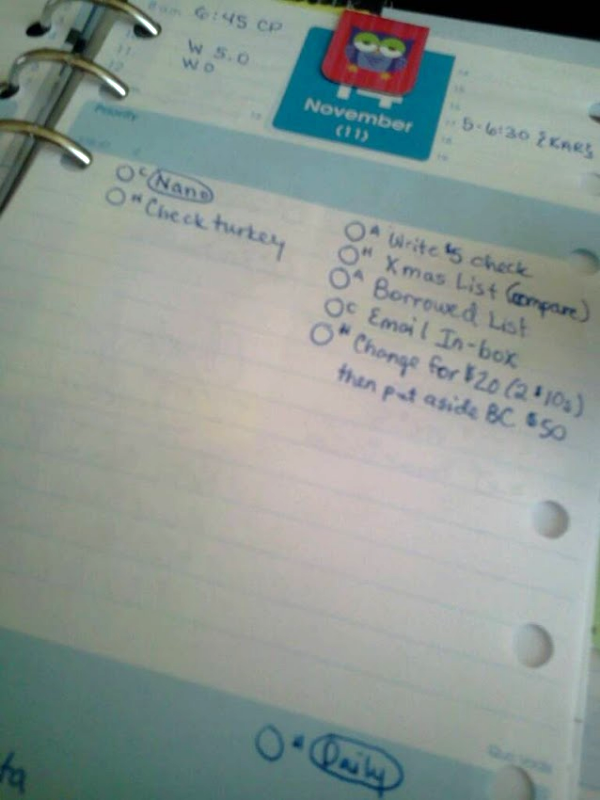 8am 6:45 CP
11 W 5.0
12 W 0
14
November
(11)
14
15
16
17 5-6:30 EKARS
18
19
Priority
C Nano
H Check turkey
A Write $5 check
H Xmas List (compare)
A Borrowed List
C Email In-box
H Change for $20 (2 $10s)
then put aside BC $50
H Daily
ta